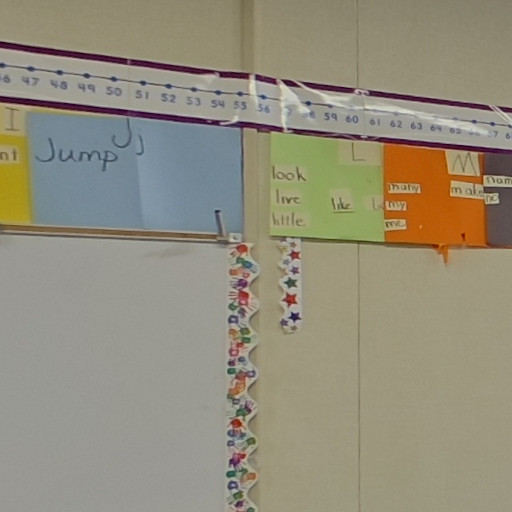 47 48 49 50 51 52 53 54 55 56 58 59 60 61 62 63 64 65
I
Jj
Jump
L
look
live
little
like
M
many
my
me
make